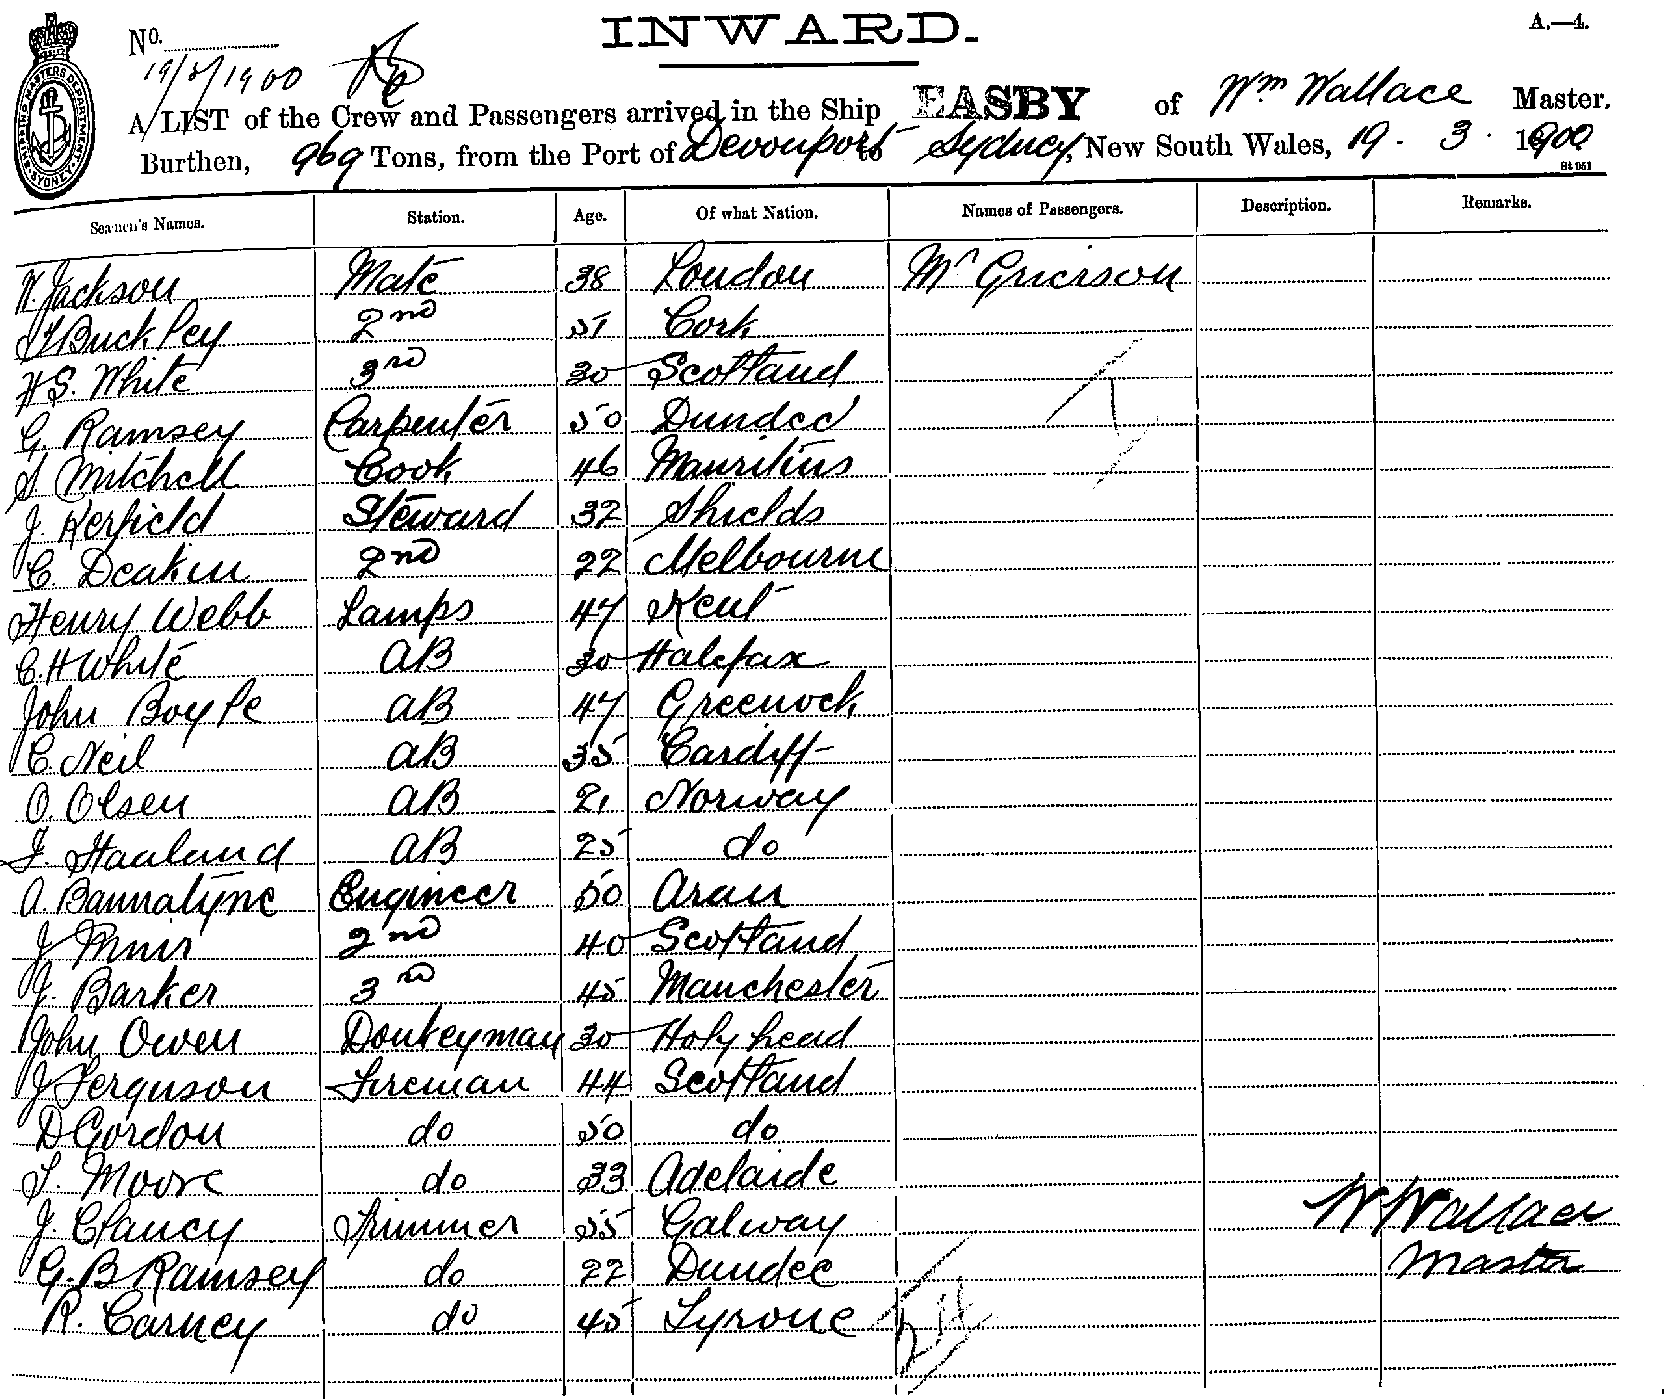 INWARD.
A.—4.
No.
19/3/1900
A LIST of the Crew and Passengers arrived in the Ship EASBY of Wm Wallace Master.
Burthen, 969 Tons, from the Port of Devonport to Sydney, New South Wales, 19 . 3 . 1900
Seamen's Names. Station. Age. Of what Nation. Names of Passengers. Description. Remarks.
W. Jackson Mate 38 London Mr Grierson
T Buckley 2nd 51 Cork
H S. White 3rd 30 Scotland
G. Ramsey Carpenter 50 Dundee
S Mitchell Cook 46 Mauritius
J. Kerfield Steward 32 Shields
C. Deakin 2nd 22 Melbourne
Henry Webb Lamps 47 Kent
C. H White AB 30 Halefax
John Boyle AB 47 Greenock
C. Neil AB 35 Cardiff
O. Olsen AB 21 Norway
F. Haaland AB 25 do
A. Bannatyne Engineer 50 Aran
J Muir 2nd 40 Scotland
J. Barker 3rd 45 Manchester
John Owen Donkeyman 30 Holyhead
J Ferguson Fireman 44 Scotland
D Gordon do 50 do
T. Moore do 33 Adelaide
J. Clancy Trimmer 55 Galway
W Wallace
G. B Ramsey do 22 Dundee
Master
R. Carney do 45 Tyrone
24